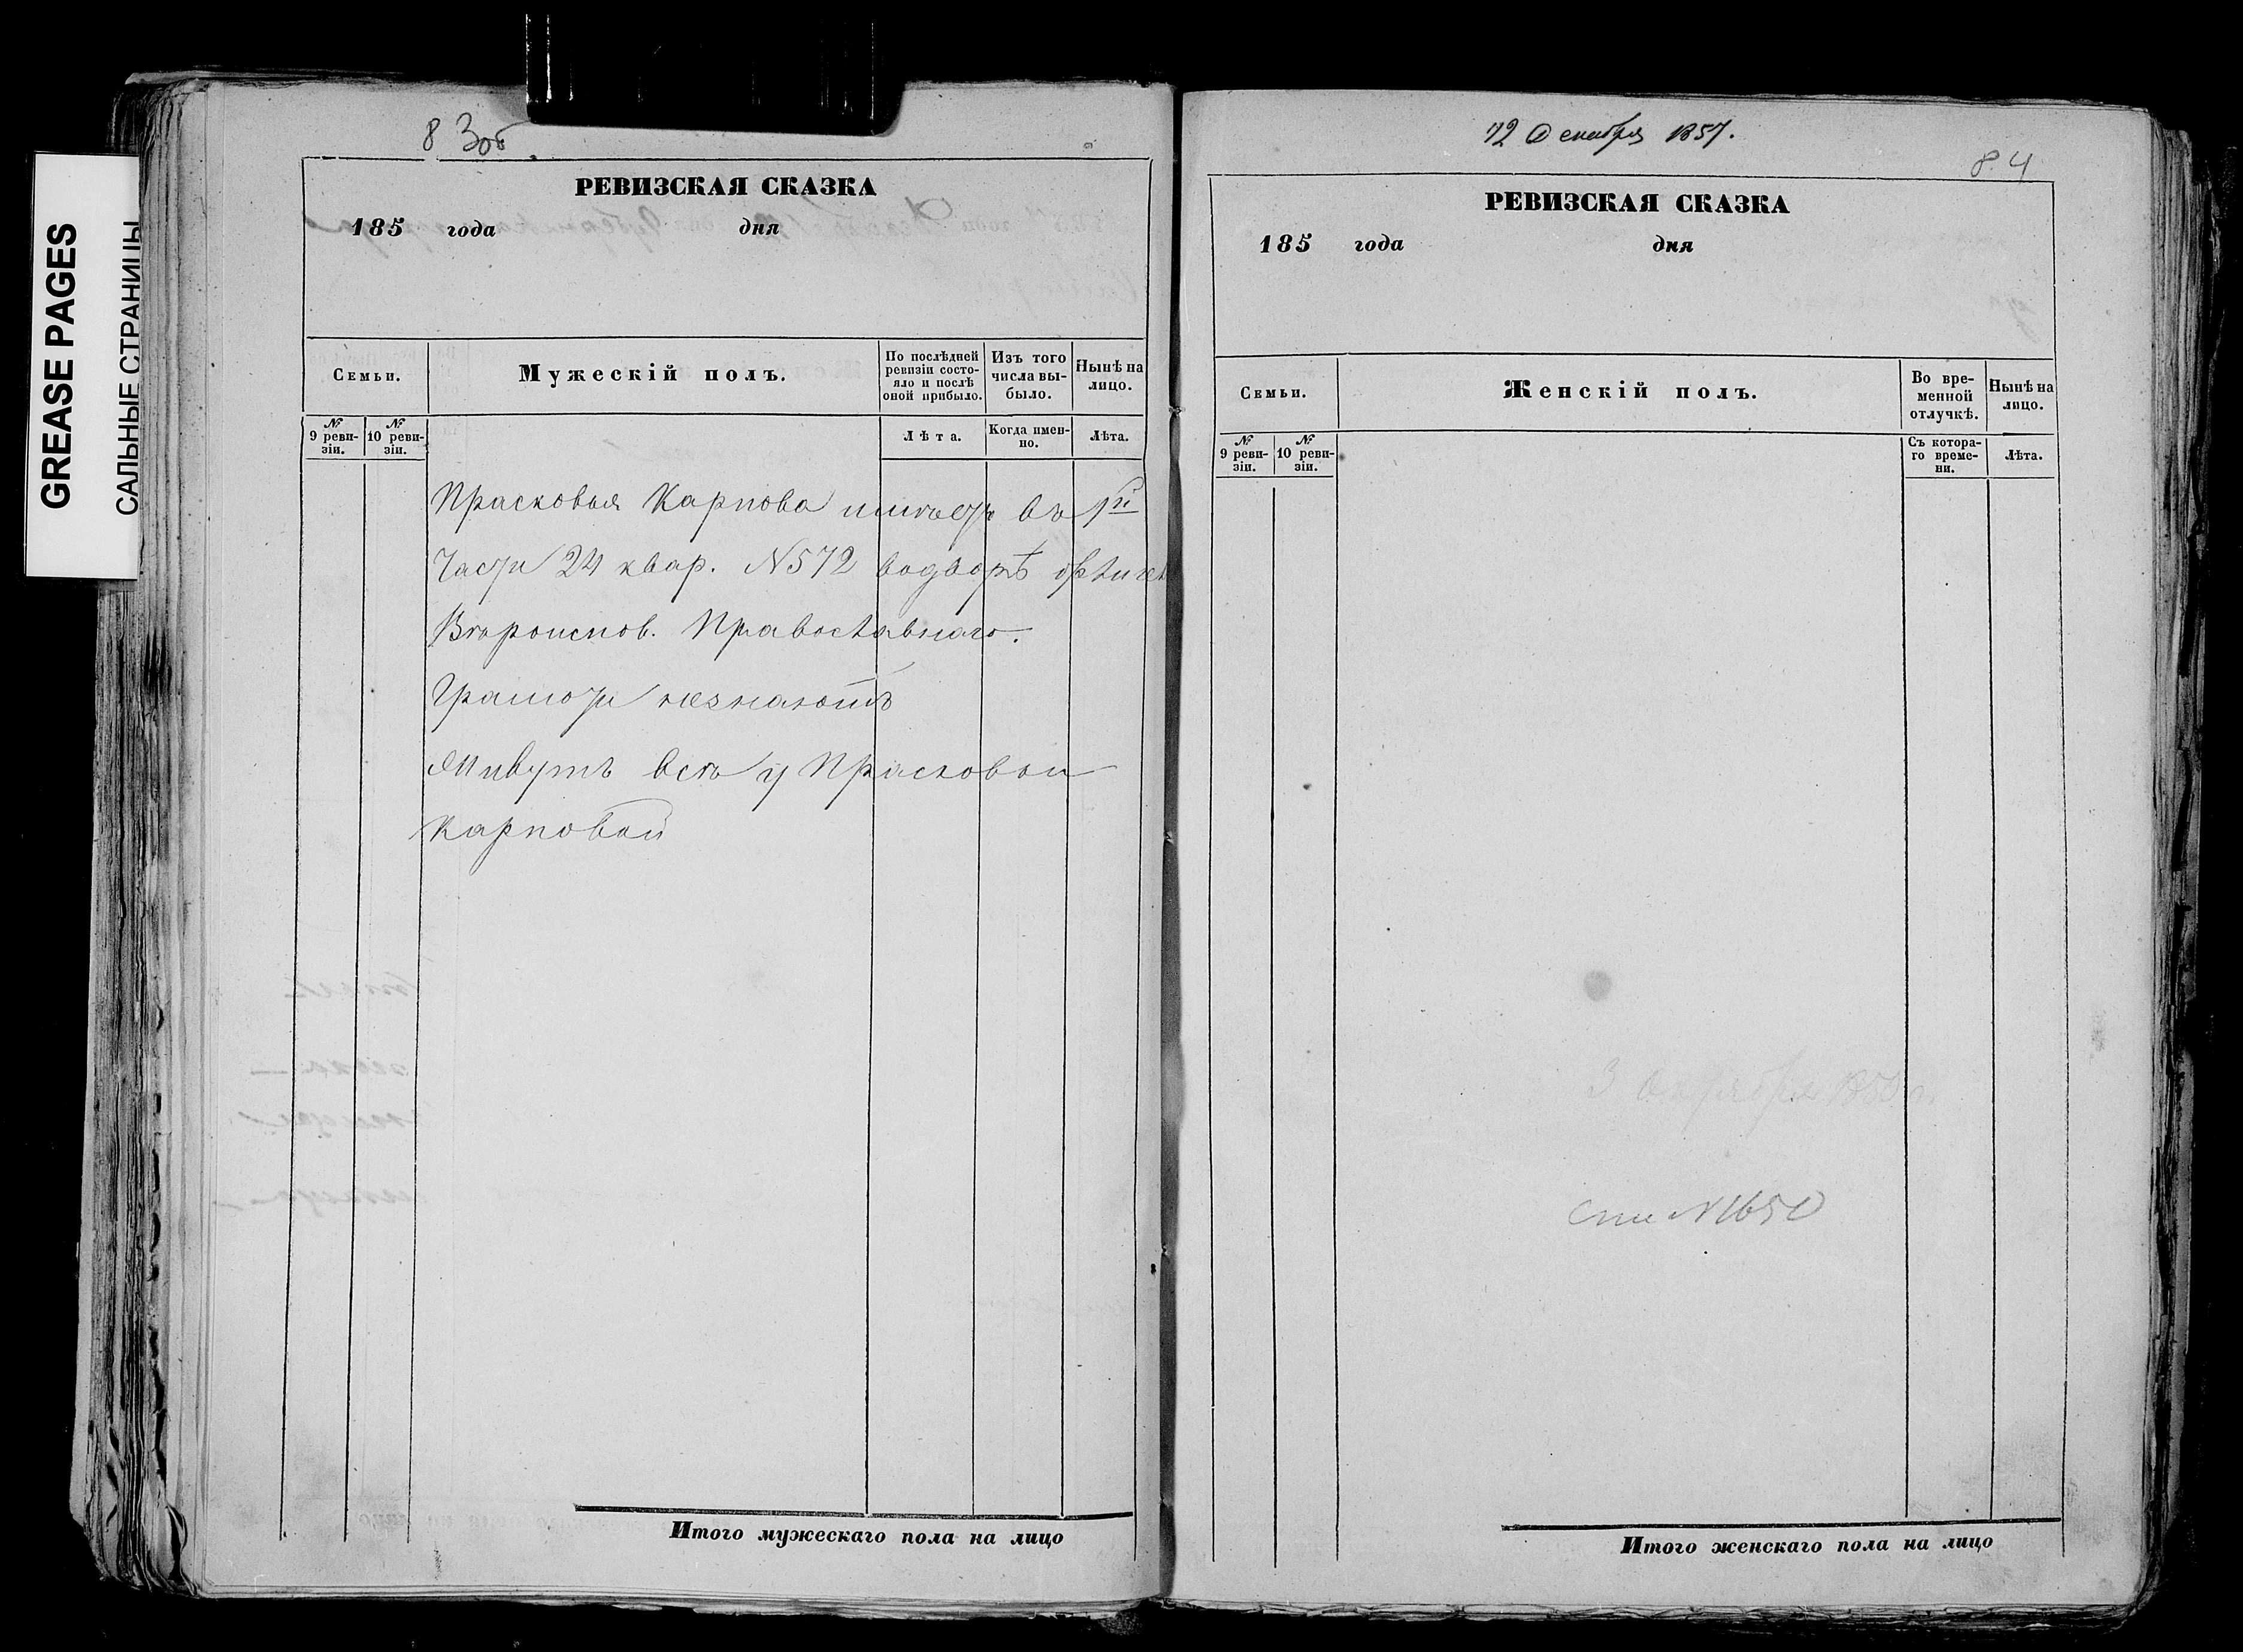 GREASE PAGES
САЛЬНЫЕ СТРАНИЦЫ
8 3об
РЕВИЗСКАЯ СКАЗКА
185 года дня
Семьи.
Мужескій полъ.
По послѣдней ревизіи состояло и послѣ оной прибыло.
Изъ того числа выбыло.
Нынѣ на лицо.
№ 9 ревизіи.
№ 10 ревизіи.
Лѣта.
Когда именно.
Лѣта.
Прасковья Карпова имѣетъ въ 1й
Части 24 квар. №572
Вѣроиспов. Православнаго.
Грамоти незнаютъ
Живутъ всѣ у Прасковьи
Карповой
Итого мужескаго пола на лицо
12 Декабря 1857.
8.4
РЕВИЗСКАЯ СКАЗКА
185 года дня
Семьи.
Женскій полъ.
Во временной отлучкѣ.
Нынѣ на лицо.
№ 9 ревизіи.
№ 10 ревизіи.
Съ котораго времени.
Лѣта.
№1650
Итого женскаго пола на лицо